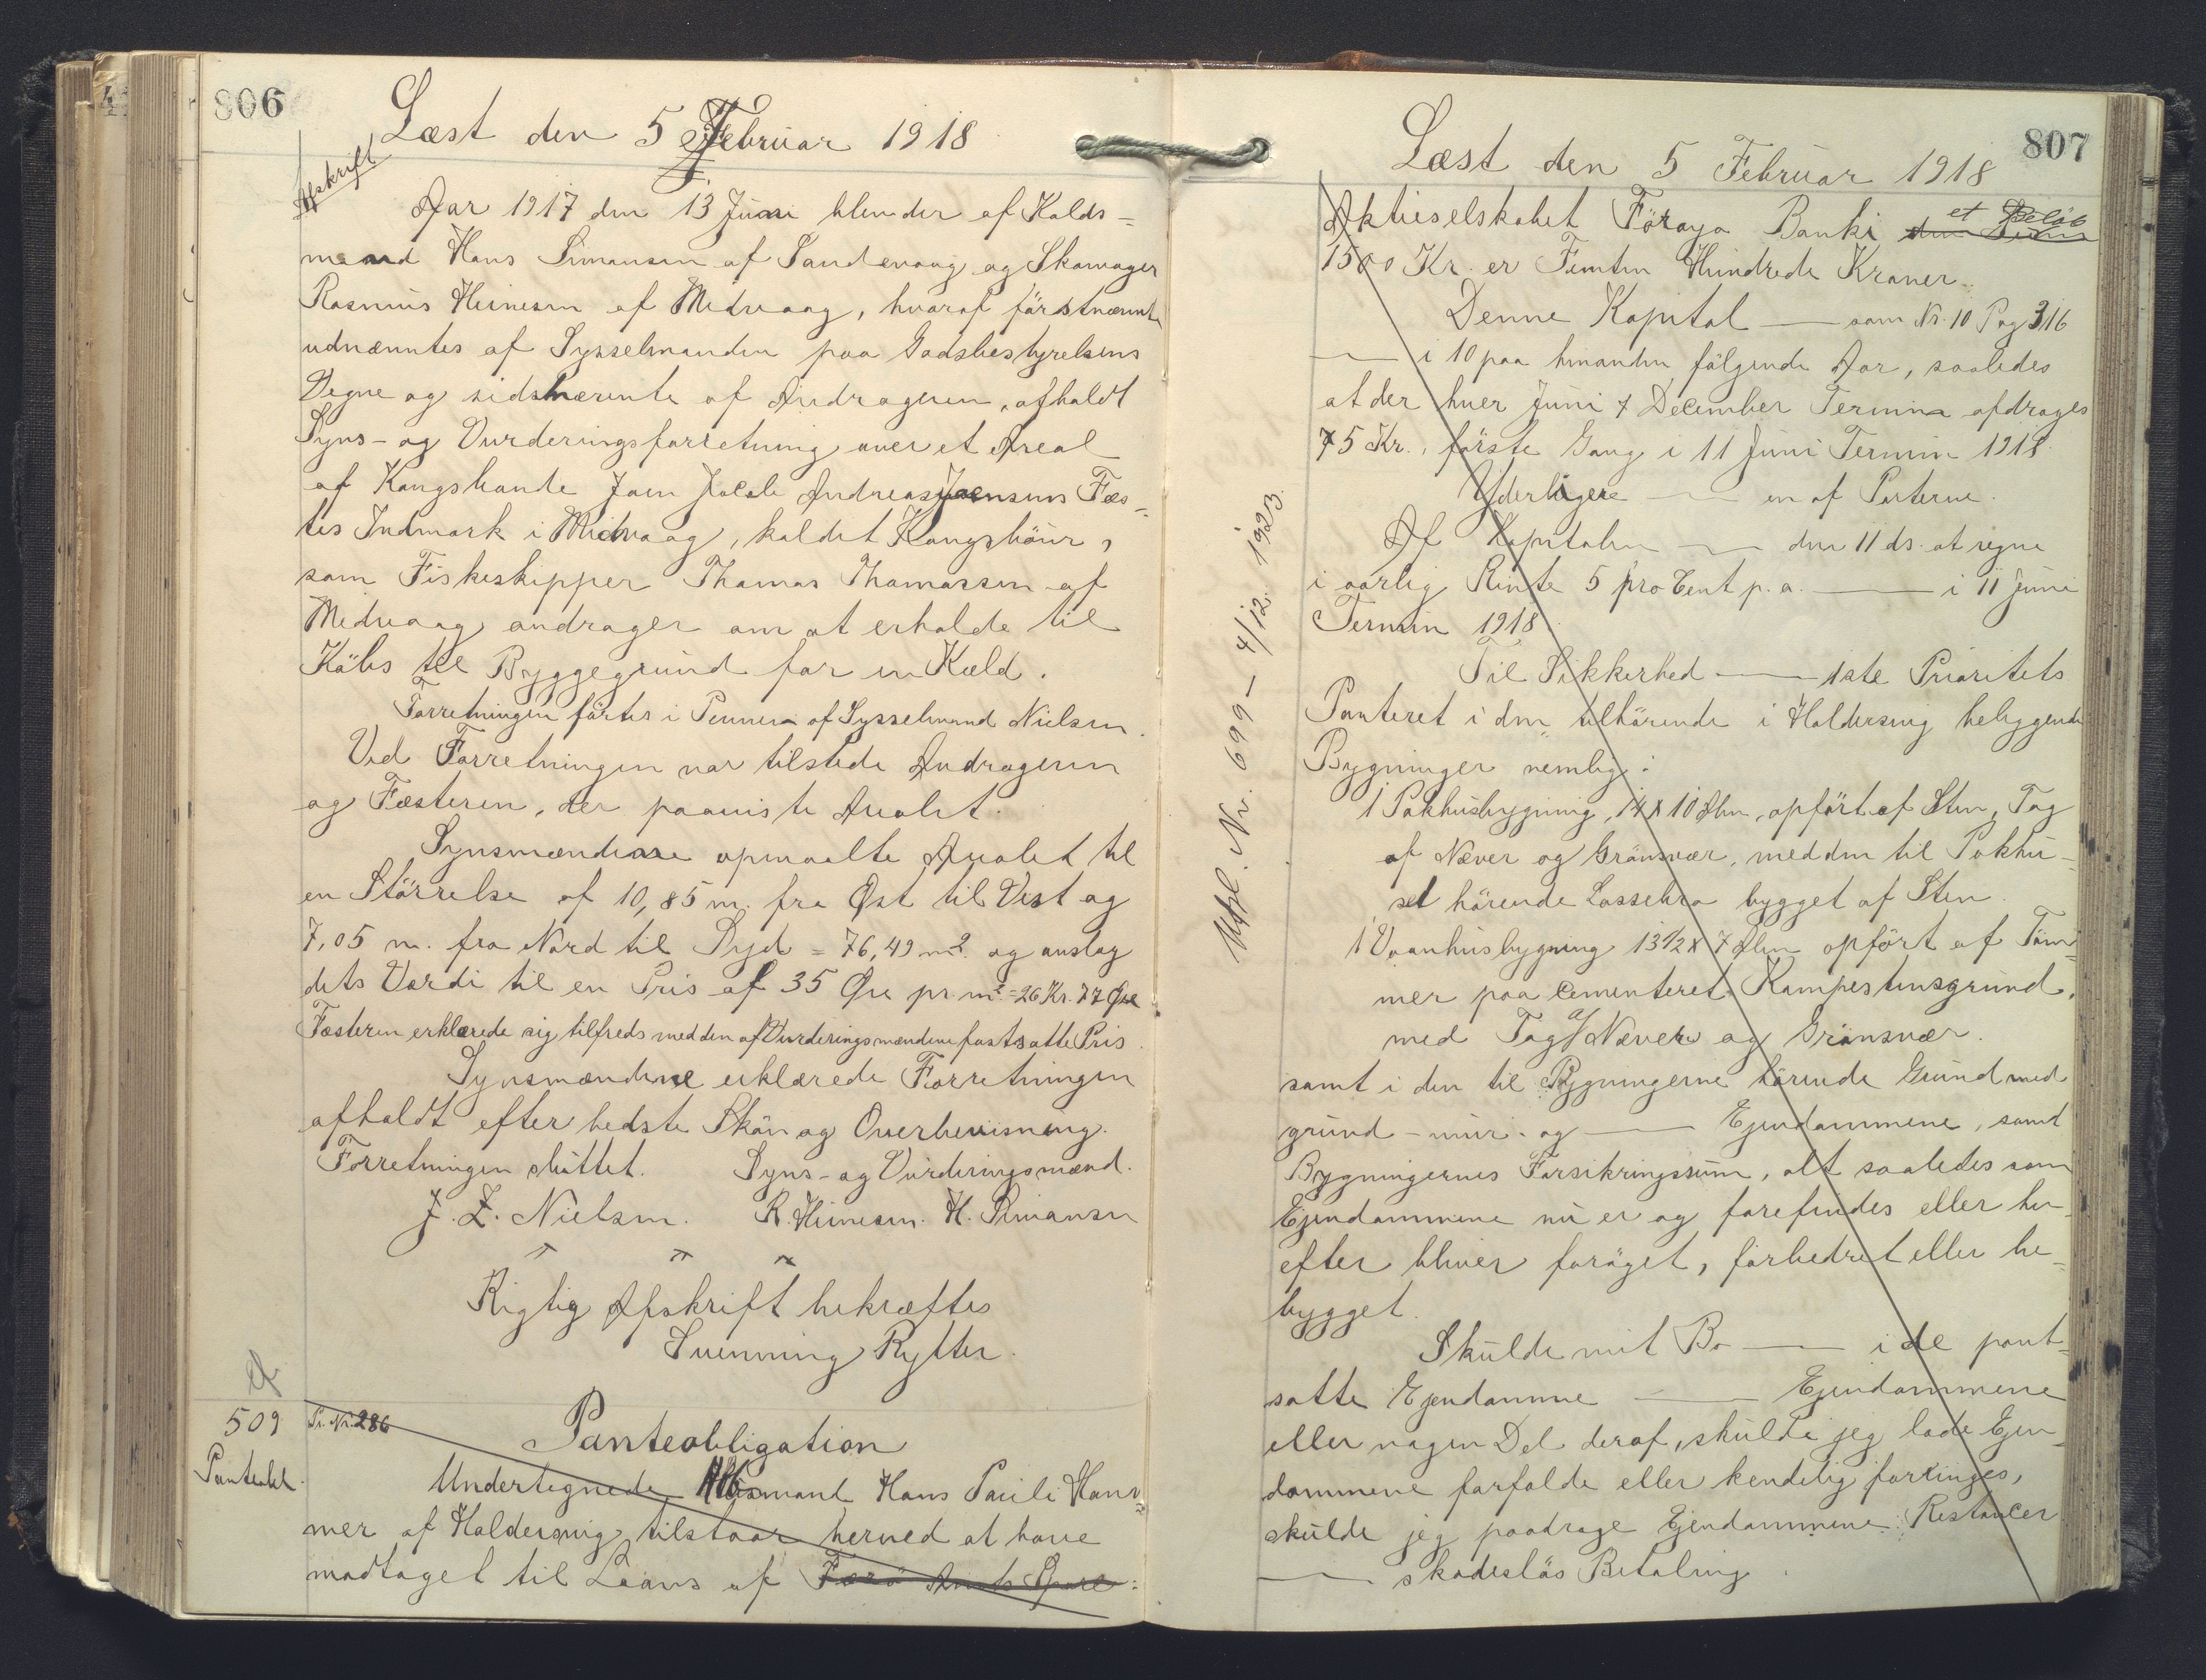 806
Læst den 5 Februar 1918
Afskrift
Aar 1917 den 13 Juni blev der af Holds-
mand Hans Simonsen af Sandevaag og Skomager
Rasmus Heinesen af Midvaag, hvoraf förstnævnte
udnævntes af Sysselmanden paa Godsbestyrelsens
Vegne og sidstnævnte af Andrageren, afholdt
Syns- og Vurderingsforretning over et Areal
af Kongsbonde Joen Jacob Andreas Joensens Fæs-
tes Indmark i Midvaag, kaldet Kongsböur,
som Fiskeskipper Thomas Thomassen af
Midvaag andrager om at erholde til
Köbs til Byggegrund for en Kæld.
Forretningen förtes i Pennen af Sysselmand Nielsen.
Ved Forretningen var tilstede Andrageren
og Fæsteren, der paaviste Arealet.
Synsmændene opmaalte Arealet til
en Störrelse af 10,85 m. fra Øst til Vest og
7,05 m. fra Nord til Syd = 76,49 m². og anslog
dets Værdi til en Pris af 35 Øre pr. m² = 26 Kr. 77 Øre
Fæsteren erklærede sig tilfreds med den af Vurderingsmændene fastsatte Pris.
Synsmændene erklærede Forretningen
afholdt efter bedste Skön og Overbevisning.
Forretningen sluttet. Syns- og Vurderingsmænd.
J. Z. Nielsen. R. Heinesen. H. Simonsen
Rigtig Afskrift bekræftes
Svenning Rytter.
509 Pr. Nr. 286
Panteobl.
Panteobligation
Undertegnede Husmand Hans Pauli Ham-
mer af Haldersvig tilstaar herved at have
modtaget til Laans af Færø Amts Spare-
807
Læst den 5 Februar 1918
Aktieselskabet Föroya Banki et Beløb
1500 Kr. er Femten Hundrede Kroner.
Denne Kapital — som Nr. 10 Pag 316
— i 10 paa hinanden fölgende Aar, saaledes
at der hver Juni & December Termin afdrages
75 Kr., förste Gang i 11 Juni Termin 1918.
Yderligere — en af Parterne.
Af Kapitalen — den 11 ds. at regne
i aarlig Rente 5 pro Cent p. a. — i 11 Juni
Termin 1918.
Til Sikkerhed — 1ste Prioritets
Panteret i den tilhörende i Haldersvig beliggende
Bygninger nemlig:
1 Pakhusbygning, 14 x 10 Alen, opfört af Sten, Tag
af Næver og Grönsvær, med den til Pakhu-
set hörende Lossebro bygget af Sten.
1 Vaanhusbygning 13 1/2 x 7 Alen opfört af Töm-
mer paa cementeret Kampestensgrund,
med Tag af Næver og Grönsvær.
samt i den til Bygningerne hörende Grund med
grund- mur- og — Ejendommene, samt
Bygningernes Forsikringssum, alt saaledes som
Ejendommene nu er og forefindes eller her-
efter bliver foröget, forbedret eller be-
bygget.
Skulde mit Bo — i de pant-
satte Ejendomme — Ejendommene
eller nogen Del deraf, skulde jeg lade Ejen-
dommene forfalde eller kendelig forringes,
skulde jeg paadrage Ejendommene Restancer
— skadeslös Betaling.
Utfl. Nr. 699 – 4/12. 1923.